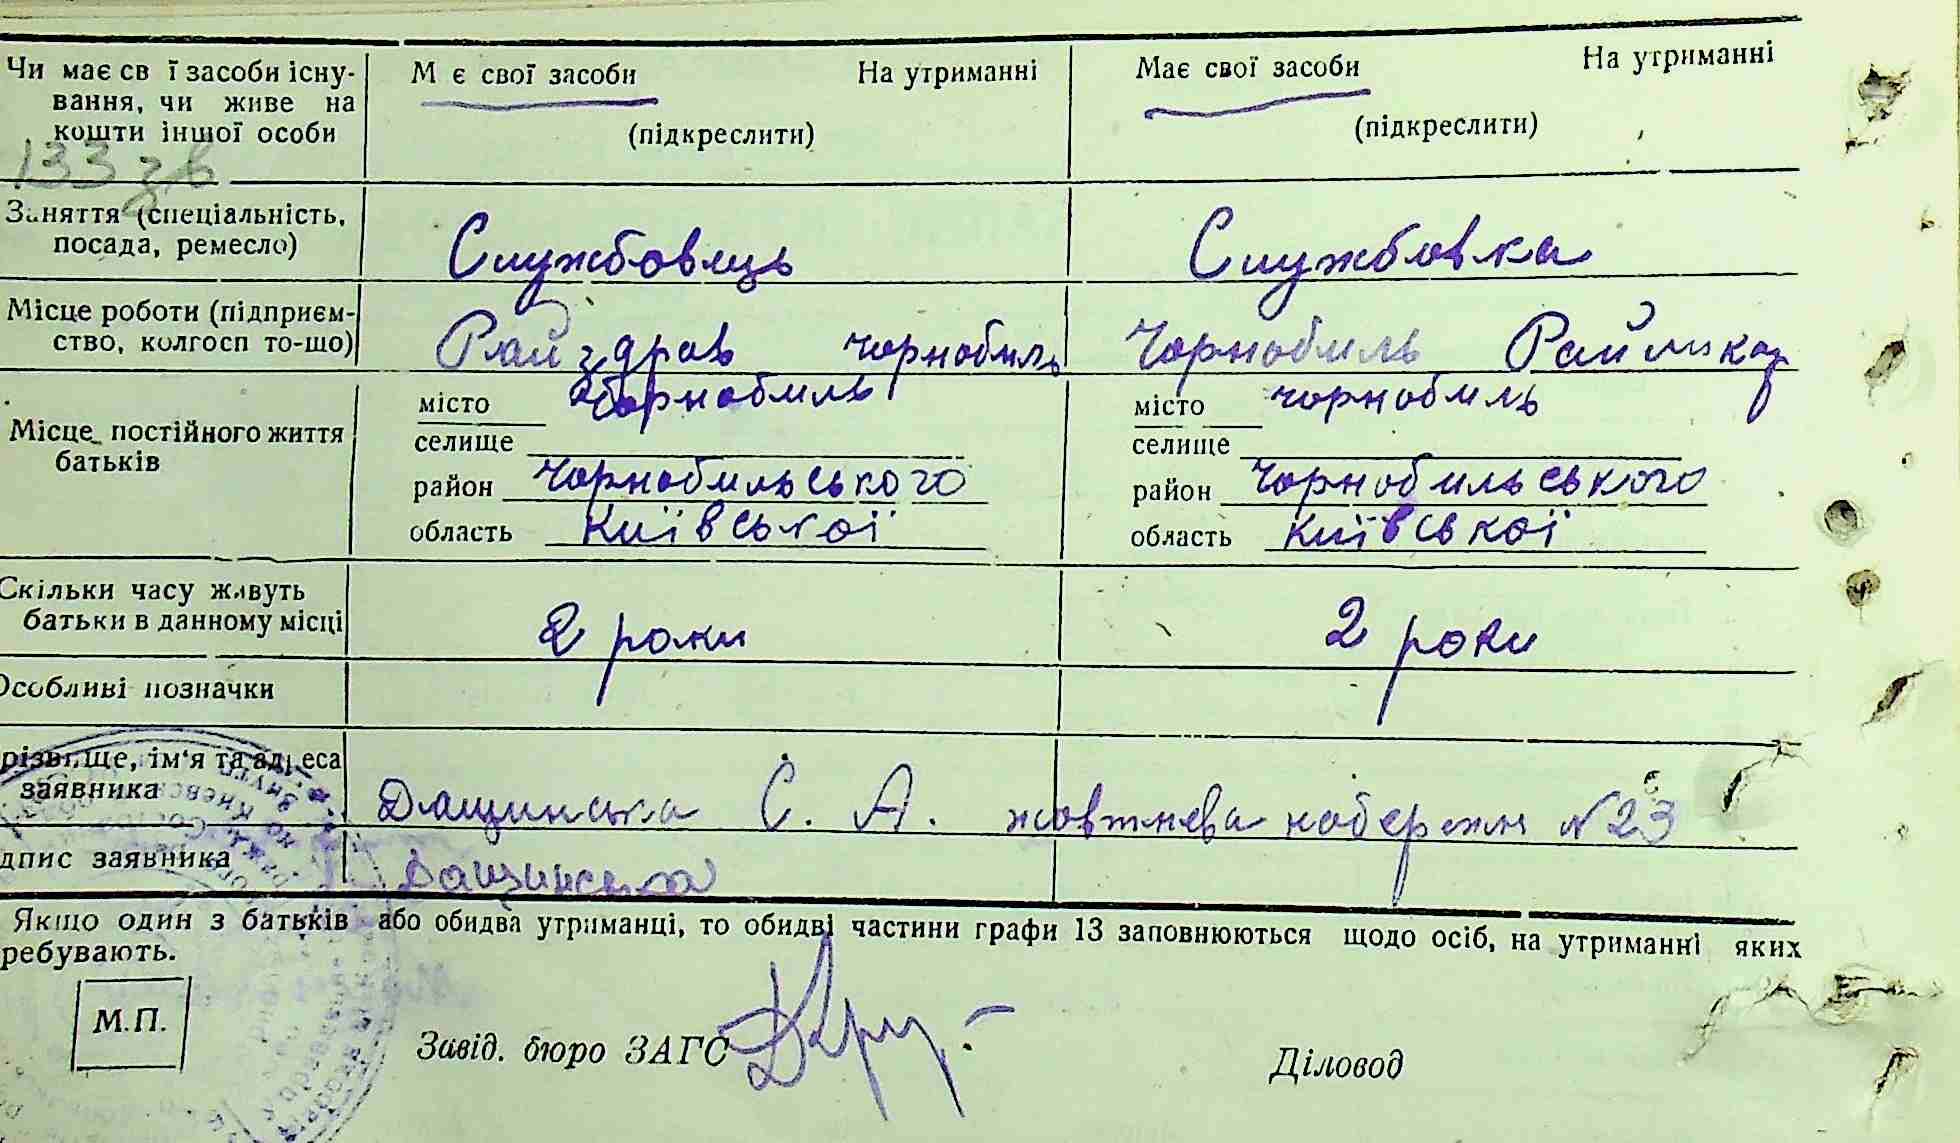 Чи має св ї засоби існу-
вання, чи живе на
кошти іншої особи
М є свої засоби На утриманні
(підкреслити)
Має свої засоби На утриманні
(підкреслити)
133 зв
Заняття (спеціальність,
посада, ремесло)
Службовець
Службовка
Місце роботи (підприєм-
ство, колгосп то-що)
Райздрав Чорнобиль
Чорнобиль Рай
Місце постійного життя
батьків
місто Чорнобиль
селище
район Чорнобильського
область Київської
місто Чорнобиль
селище
район Чорнобильського
область Київської
Скільки часу живуть
батьки в данному місці
2 роки
2 роки
Особливі позначки
різвище, ім'я та адреса
заявника
Дащинська Є. А. жовтнева набережн №23
дпис заявника
Дащинська
Якщо один з батьків або обидва утриманці, то обидві частини графи 13 заповнюються щодо осіб, на утриманні яких
ребувають.
М.П.
Завід. бюро ЗАГС
Діловод